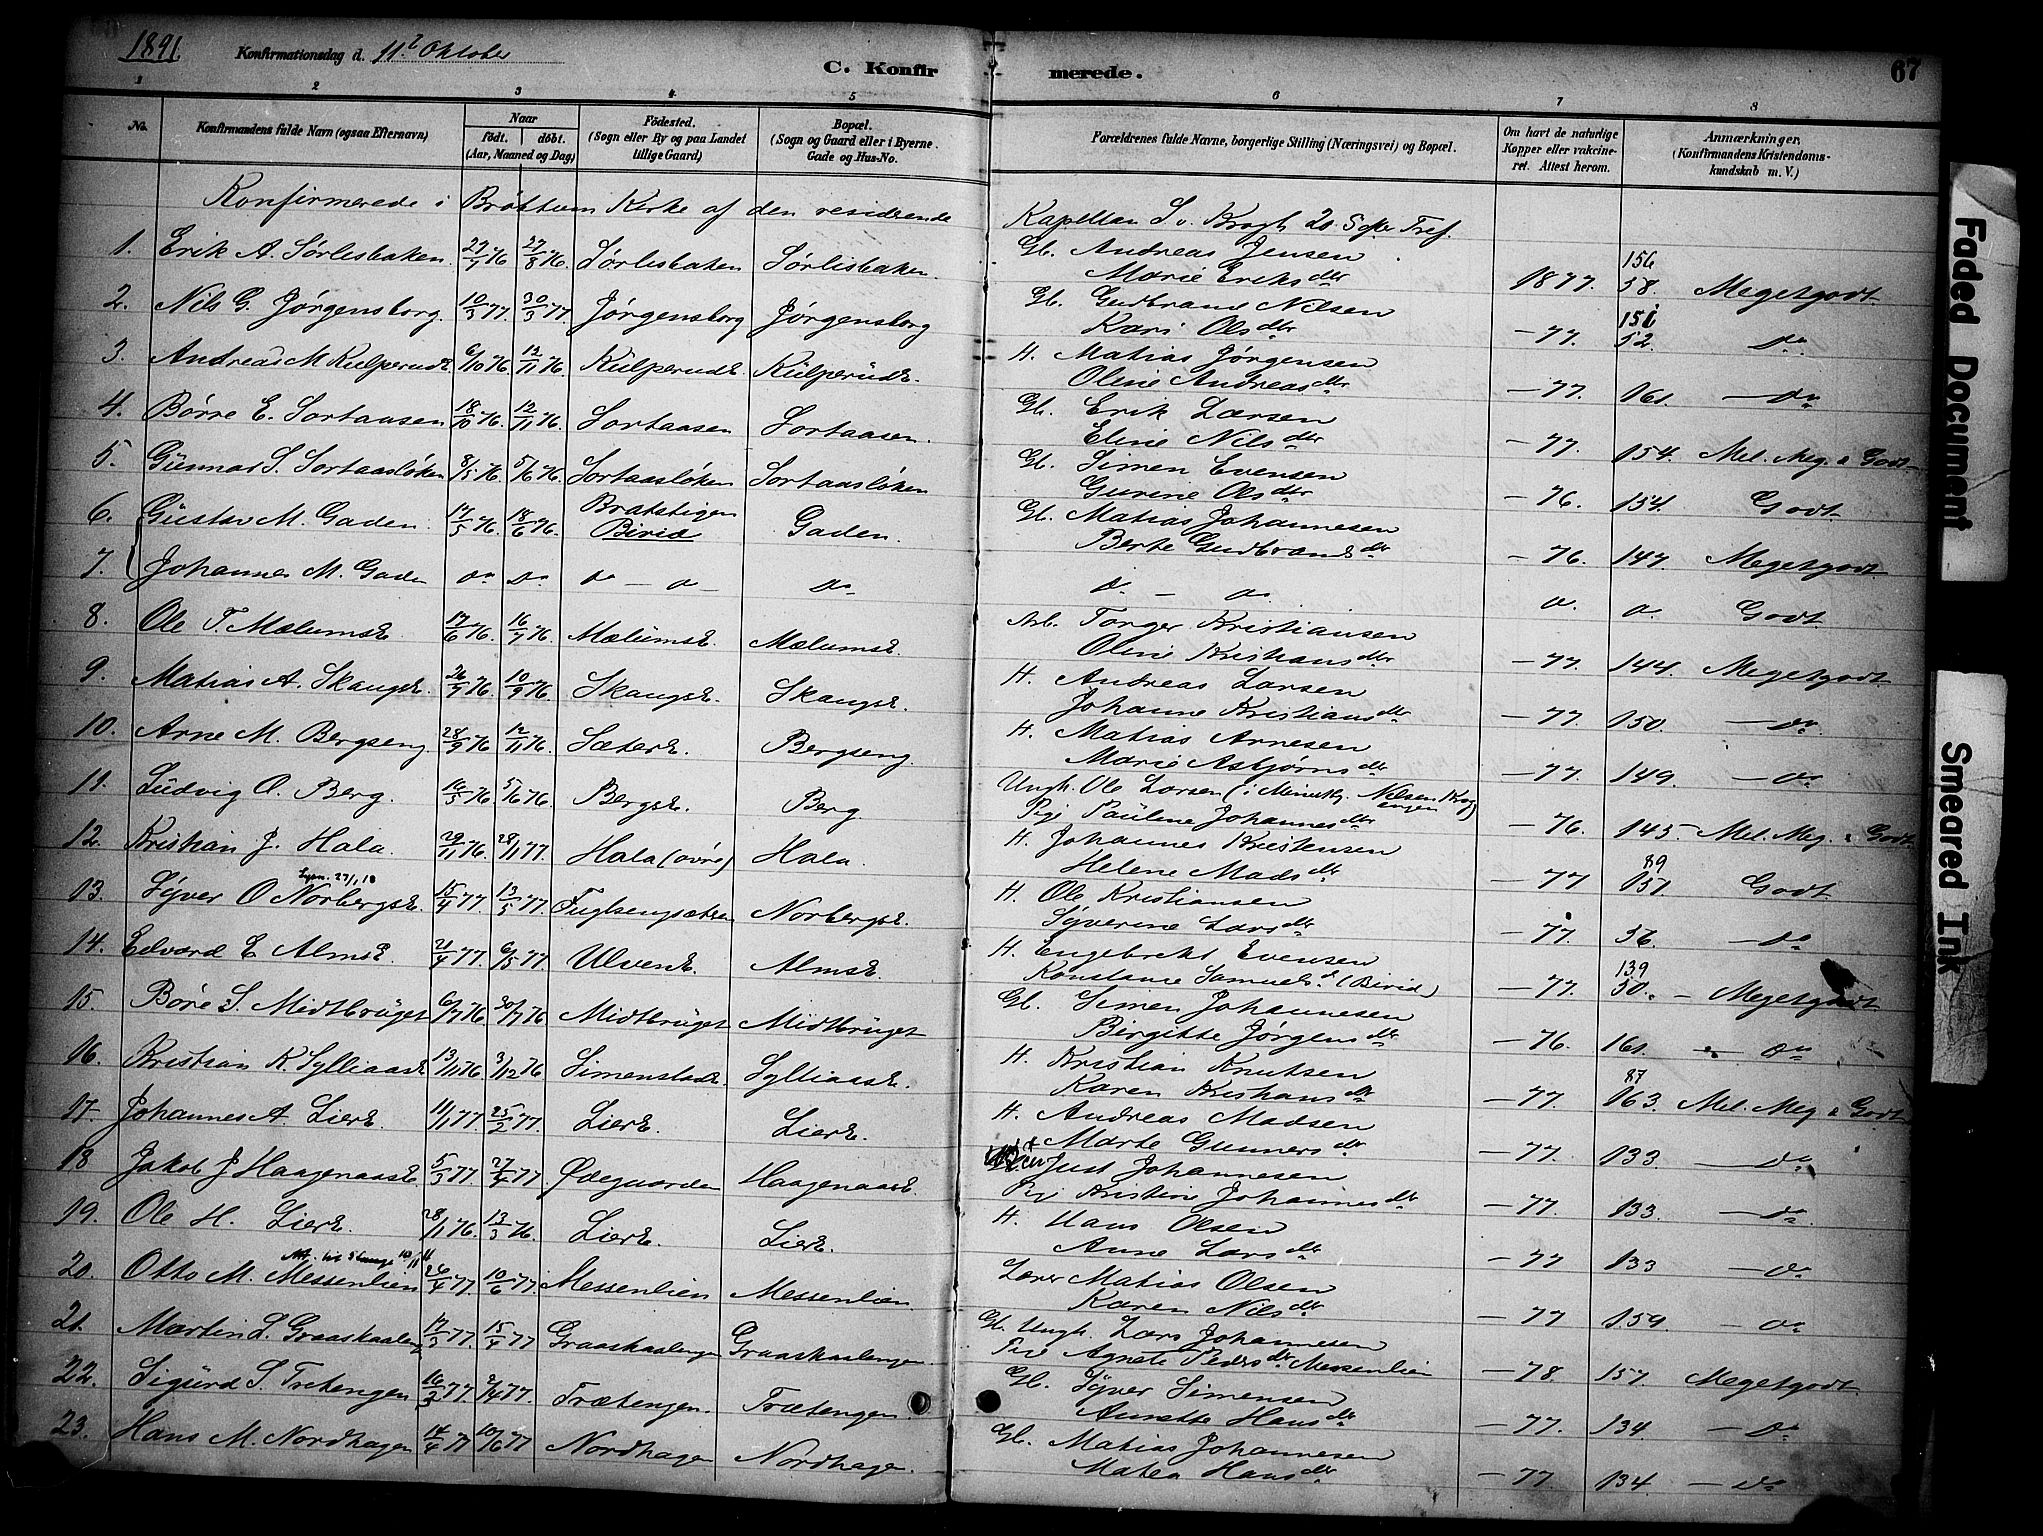 1891
Konfirmationsdag d. 11te Oktober
C. Konfirmerede.
67
1 2 3 4 5 6 7 8
No.
Konfirmandens fulde Navn (ogsaa Efternavn)
Naar født. døbt. (Aar, Maaned og Dag)
Fødested. (Sogn eller By og paa Landet tillige Gaard)
Bopæl. (Sogn og Gaard eller i Byerne Gade og Hus-No.
Forældrenes fulde Navne, borgerlige Stilling (Næringsvei) og Bopæl.
Om havt de naturlige Kopper eller vakcineret. Attest herom.
Anmærkninger. (Konfirmandens Kristendomskundskab m. V.)
Konfirmerede i Brøttum Kirke af den residerende Kapellan S. v. Krogh 20. S. efter Tref.
1. Erik A. Sørlisbaken. 27/8 76. Sørlisbaken Sørlisbaken. Gb. Andreas Jensen 156
Marie Eriksdtr 1877. 58. Megetgodt
2. Nils G. Jørgensborg. 10/3 77. 30/3 77. Jørgensborg Jørgensborg Gb. Gudbrand Nilsen 151
Kari Olsdtr — 77. 52. Do
3. Andreas M Külperudk. 6/10 76. 12/11 76. Külperudk. Külperüdk. H. Matias Jørgensen
Oline Andreasdtr — 77. 161. — Do
4. Børre E. Sortaasen 18/10 76. 12/11 76. Sortaasen Sortaasen. Gb. Erik Larsen
Eline Nilsdtr — 77. 154. Mel. Meg. & Godt
5. Günnar S. Sortaasløken 8/5 76. 5/6 76. Sortaasløken Sortaasløken Gb. Simen Evensen
Gurine Olsdtr — 76. 154. Godt
6. Güstav M. Gaden. 17/5 76. 18/6 76. Bratstigen Birid Gaden. Gb. Matias Johannesen
Berte Gudbrandsdtr — 76. 147. Megetgodt
7. Johannes M. Gaden Do Do Do — o Do D. — o. o. o. Godt
8. Ole T. Mælumsk. 17/6 76. 16/7 76. Mælümsk. Mælumsk. Arb. Torger Kristiansen
Oline Kristiansdtr — 77. 144. Megetgodt
9. Matias A. Skaugsk. 10/9 76. Skaugsk. Skaugsk. H. Andreas Larsen
Johanne Kristiansdtr — 77. 150. — Do
10. Arne M. Bergseng 28/9 76 12/11 76. Sæterk. Bergseng. H. Matias Arnesen
Marie Asbjørnsdtr — 77. 149. — Do
11. Lüdvig O. Berg. 16/5 76 5/6 76. Bergsk. Berg Ungk. Ole Larsen
Pige Pauline Johannesdtr — 76. 145 Mel. Meg. & Godt
12. Kristian J. Hala. 29/11 76. 28/1 77. Hala (øvre) Hala. H. Johannes Kristensen 89
Helene Madsdtr — 77 151. Godt
13. Syver O Norbergsk. 15/4 77. 13/5 77. Fuglsengsætren Norbergsk. H. Ole Kristiansen
Syverine Larsdtr — 77. 36. — Do
14. Edvard E Almsk. 21/4 77. 6/5 77. Ulvenk. Almsk. H. Engebrekt Evensen 139
Konstanse Samuelsd. (Birid) — 77. 30. — Megetgodt
15. Børe S. Midtbrüget 6/7 76 30/7 76 Midtbrüget Midtbrüget Gb. Simen Johannesen
Birgitte Jørgensdtr — 76. 161. Do
16. Kristian K Sylliaask 13/11 76 3/12 76 Simenstadk. Sylliaask. H. Kristian Knutsen 87
Karen Kristiansdtr — 77. 163. Mel. Meg & Godt
17. Johannes A. Lierk 11/1 77 25/2 77. Lierk. Lierk. H. Andreas Madsen
Marte Gunnersdtr — 77. 133. — Do
18 Jakob J Haagenaask. 5/3 77 27/4 77 Ødegaarden Haagenaask. Just Johannesen
Pige Kristine Johannesdtr — 77. 133. — Do
19. Ole H. Lierk. 28/1 76. 13/3 76. Lierk. Lierk. H. Hans Olsen
Anne Larsdtr — 77 133 — Do
20. Otto M. Messenlien 26/4 77 10/6 77 Messenlien Messenlien. Lærer Matias Olsen
Karen Nilsdtr — 77 159. — Do
21. Martin L. Graaskaalengen 17/3 77. 15/4 77 Graaskaalengen Graaskaalengen. Gb. Ungk. Lars Johannesen
Pige Agnete Pedersdtr. Messenlien — 78. 157. Megetgodt
22. Sigürd S. Tretengen 16/3 77. 2/4 77. Trætengen. Trætengen. Gb. Syver Simensen
Anette Hansdtr — 77. 134. — Do
23. Hans M. Nordhagen 14/4 77 10/6 77 Nordhagen Nordhagen. Gb. Matias Johannesen
Matea Hansdtr — 77. 134. — Do
Faded Document
Smeared Ink